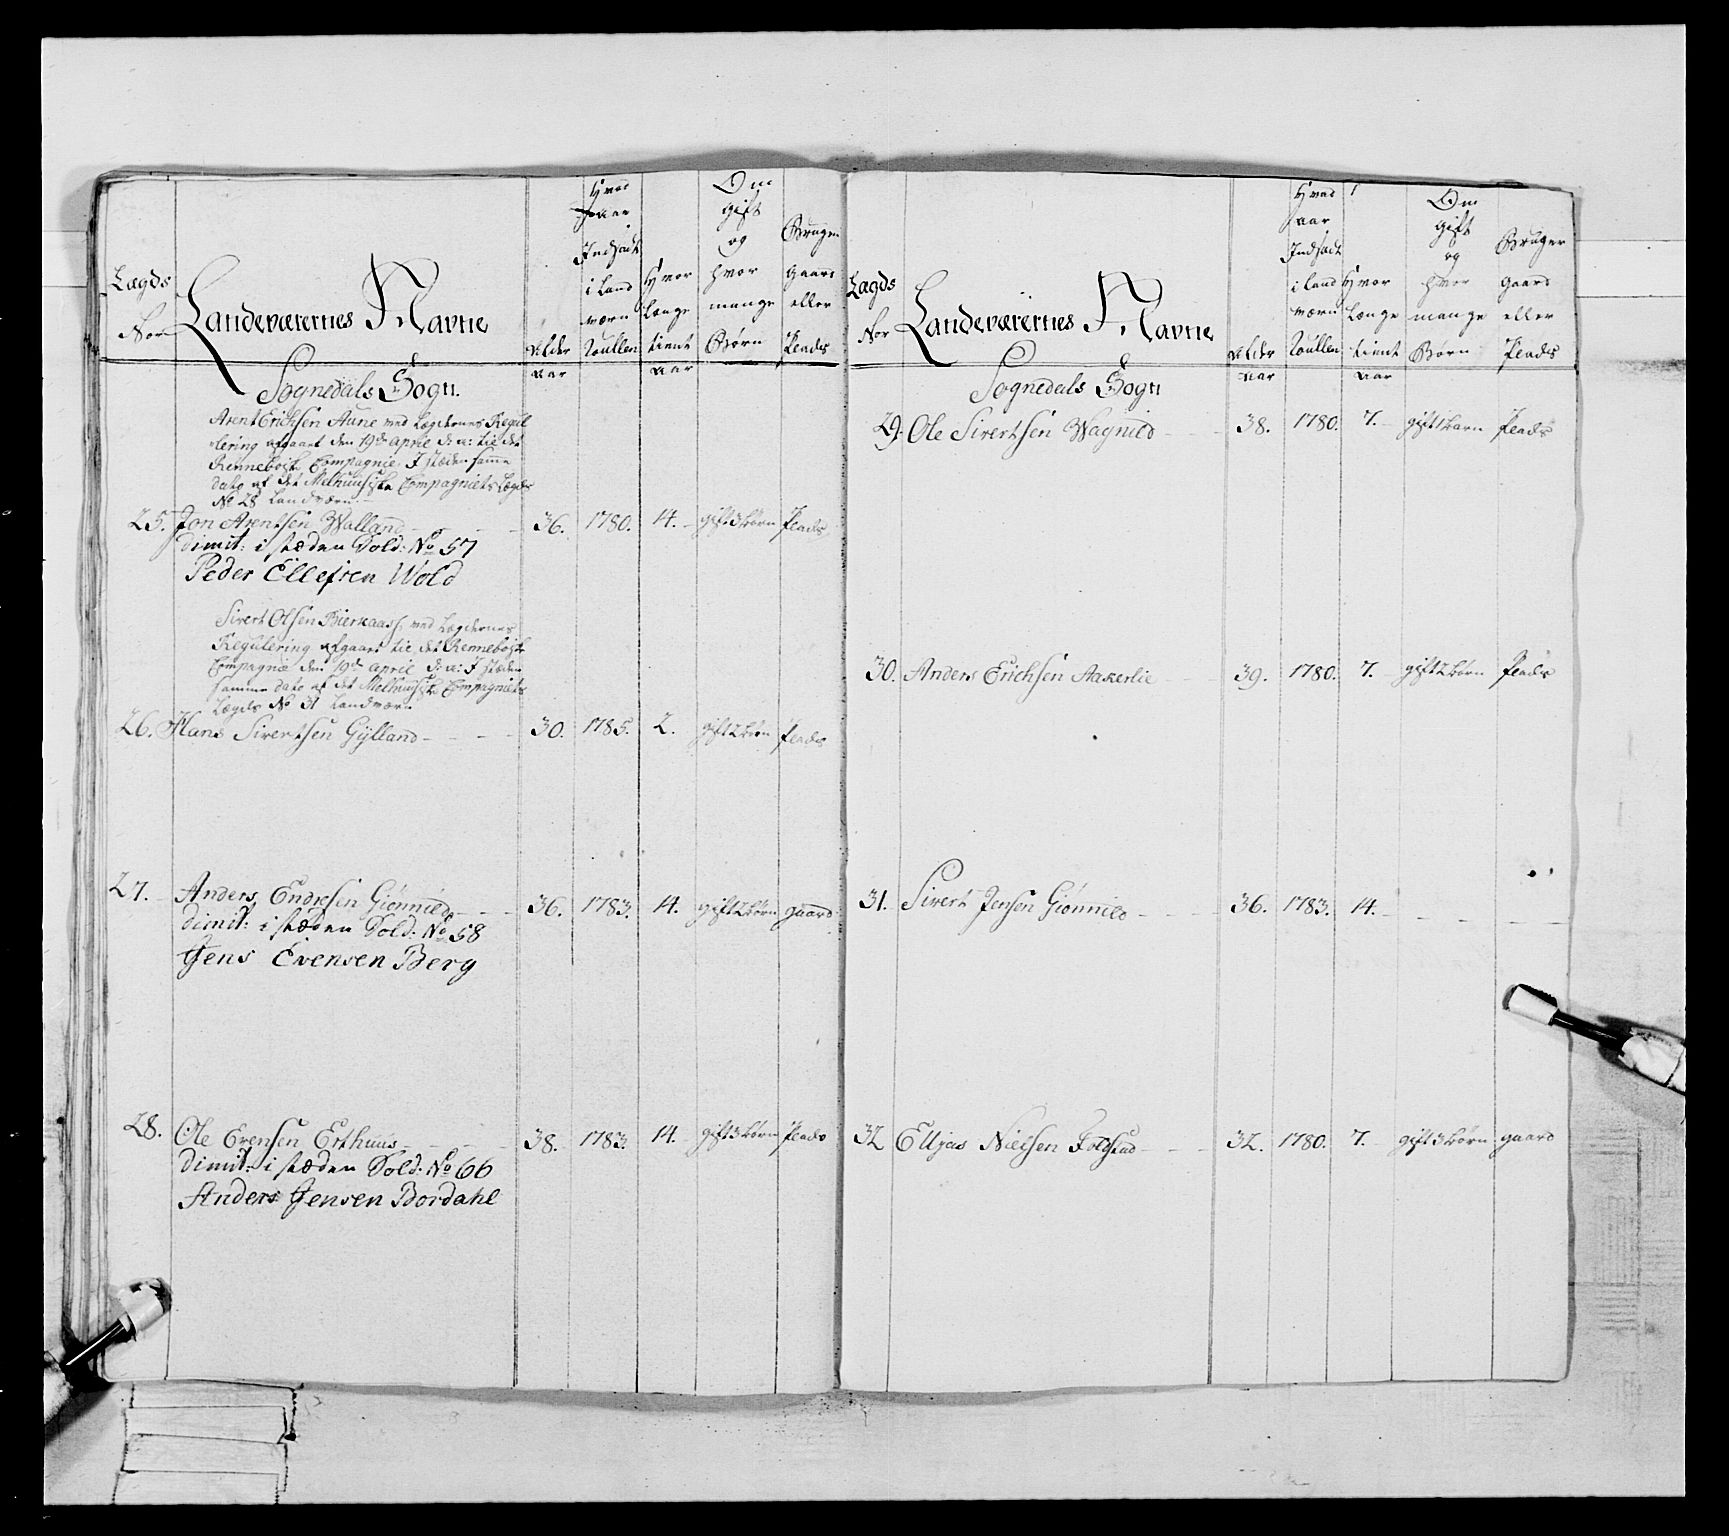 Lægds
Nor
Landeværernes Navne
Alder
aar
Hvad
Aar
Indsadt
i Land
wærn
Roullen
Hvor
længe
tient
aar
Om
gift
og
hvor
mange
Børn
Bruger
gaard
eller
Plads
Sognedals Sogn
Arent Erichsen Aune ved Lægdernes Regu
lering afgaaet den 19de April d: a: til det
Rennebojske Compagnie. I stæden samme
dato af det Melhuusiske Compagniets Lægds
No 28 Landværn
25. Jon Arentsen Walland 36. 1780. 14. gift 3 børn Plads
dimit: i stæden Sold: No 57
Peder Ellefsen Wold
Sivert Olsen Bierkaas ved Lægdernes
Regulering afgaaet til det Rennebojske
Compagnie den 19de April d: a: I stæden
samme dato af det Melhuusiske Compagniets
Lægds No 31 Landværn
26. Hans Sivertsen Gylland 30. 1785. 2. gift 2 børn Plads
27. Anders Endresen Giønnild 36. 1783. 14. gift 2 børn gaard
dimit: i stæden Sold: No 58
Jens Evensen Berg
28. Ole Evensen Erthuus 38. 1783. 14. gift 3 børn Plads
dimit: i stæden Sold: No 66
Anders Jensen Bordahl
Lægds
Nor
Landeværernes Navne
Alder
aar
Hvad
aar
Indsadt
i Land
wærn
Roullen
Hvor
længe
tient
aar
Om
gift
og
hvor
mange
Børn
Bruger
gaard
eller
Plads
Sognedals Sogn
29. Ole Sivertsen Wagnild 38. 1780. 7. gift 1 barn Plads
30. Anders Erichsen Aakerlie 39. 1780. 7. gift 2 børn Plads
31. Sivert Jensen Giønnild 36. 1783. 14.
32 Elljas Nielsen Foldstad 32. 1780. 7. gift 3 børn gaard